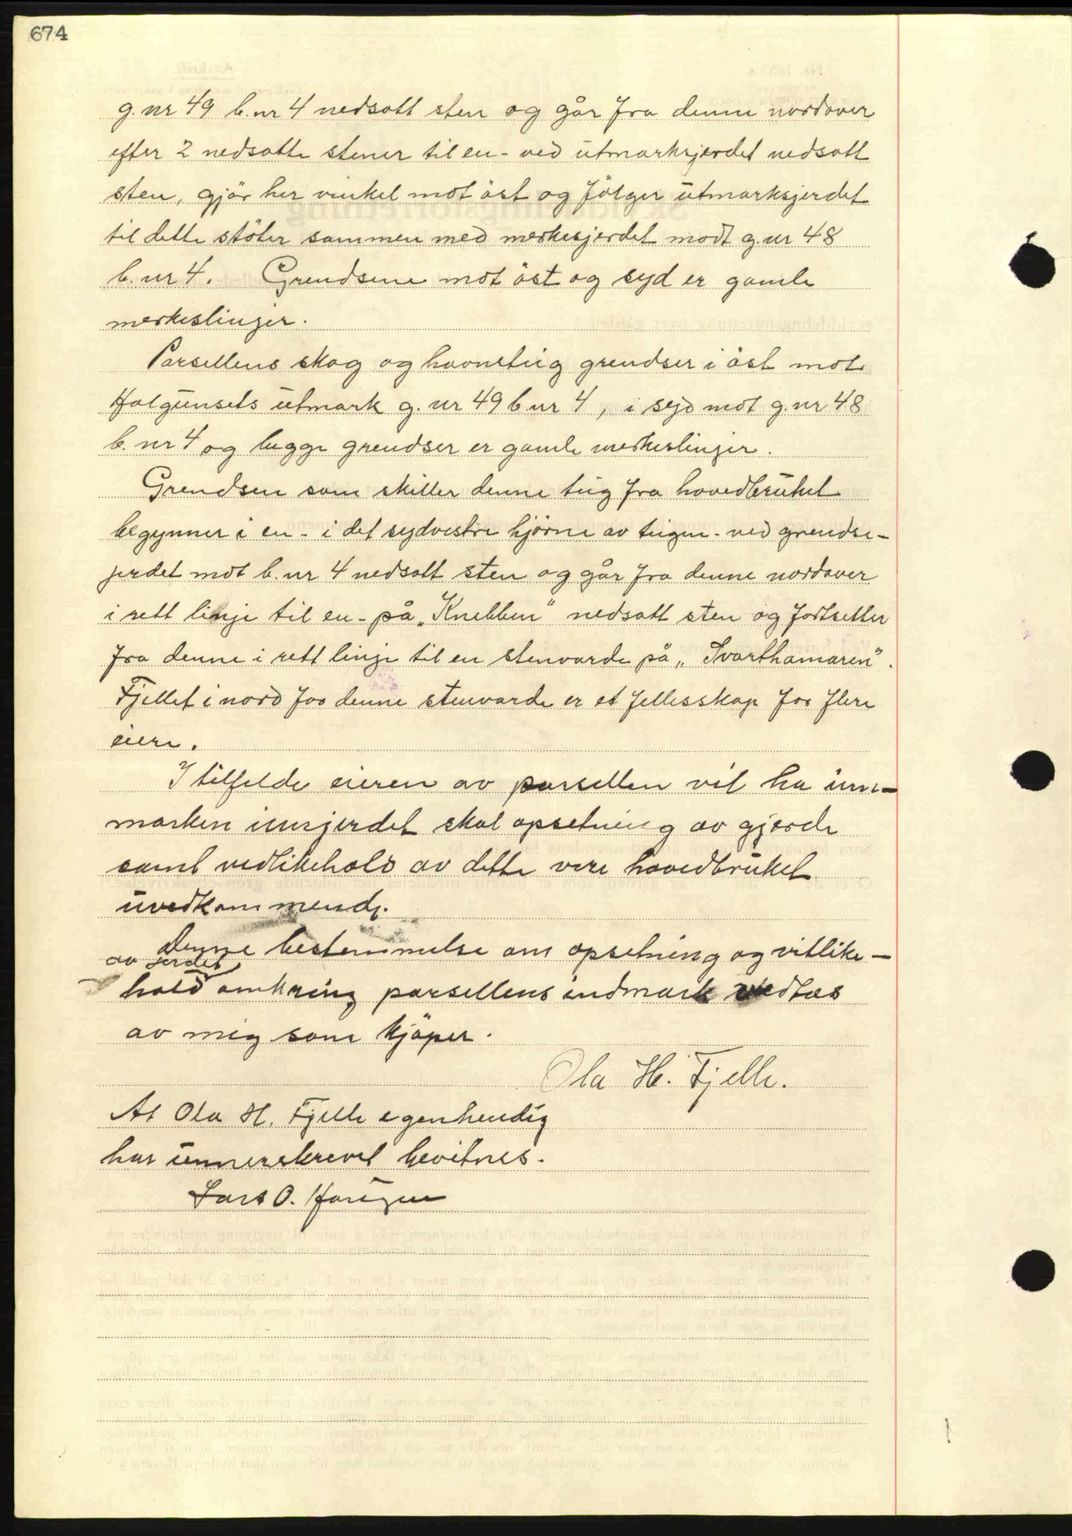 674
g. nr 49 b. nr 4 nedsatt sten og går fra denne nordover
efter 2 nedsatte stener til en - ved utmarksjerdet nedsatt
sten, gjör her vinkel mot öst og fölger utmarksjerdet
til dette stöter sammen med merkesjerdet modt g. nr 48
b. nr 4. Grendsene mot öst og syd er gamle
merkeslinjer.
Parsellens skog og havneteig grendser i öst mot
utmark g. nr 49 b nr 4, i syd mot g. nr 48
b. nr 4 og begge grendser er gamle merkeslinjer.
Grendsen som skiller denne teig fra hovedbruket
begynner i en - i det sydvestre hjörne av teigen - ved grendse-
jerdet mot b. nr 4 nedsatt sten og går fra denne nordover
i rett linje til en - på „Knebben" nedsatt sten og fortsetter
fra denne i rett linje til en stenvarde på „Svarthamaren".
Fjellet i nord for denne stenvarde er et fellesskap for flere
eiere.
I tilfelde eieren av parsellen vil ha inn-
marken innjerdet skal opsetning av gjerde
samt vedlikehold av dette vere hovedbruket
uvedkommende.
Denne bestemmelse om opsetning og vitlike-
av jerdet
hold omkring parsellens indmark vedtas
av mig som kjöper.
Ola H. Fjelle.
At Ola H. Fjelle egenhendig
har unnerskrevet bevitnes.
Lars O.